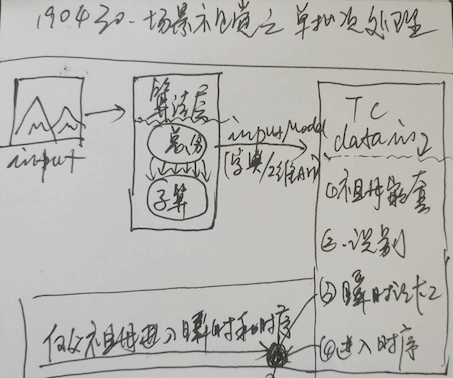 190430. 场景祖嵌之单批次处理
input
算法层
总信
子算
inputModel
(字典/2维Arr)
TC
dataIn2
①祖母嵌套
②识别
③瞬时设大2
④进入时序
仅父祖母进入瞬时和时序